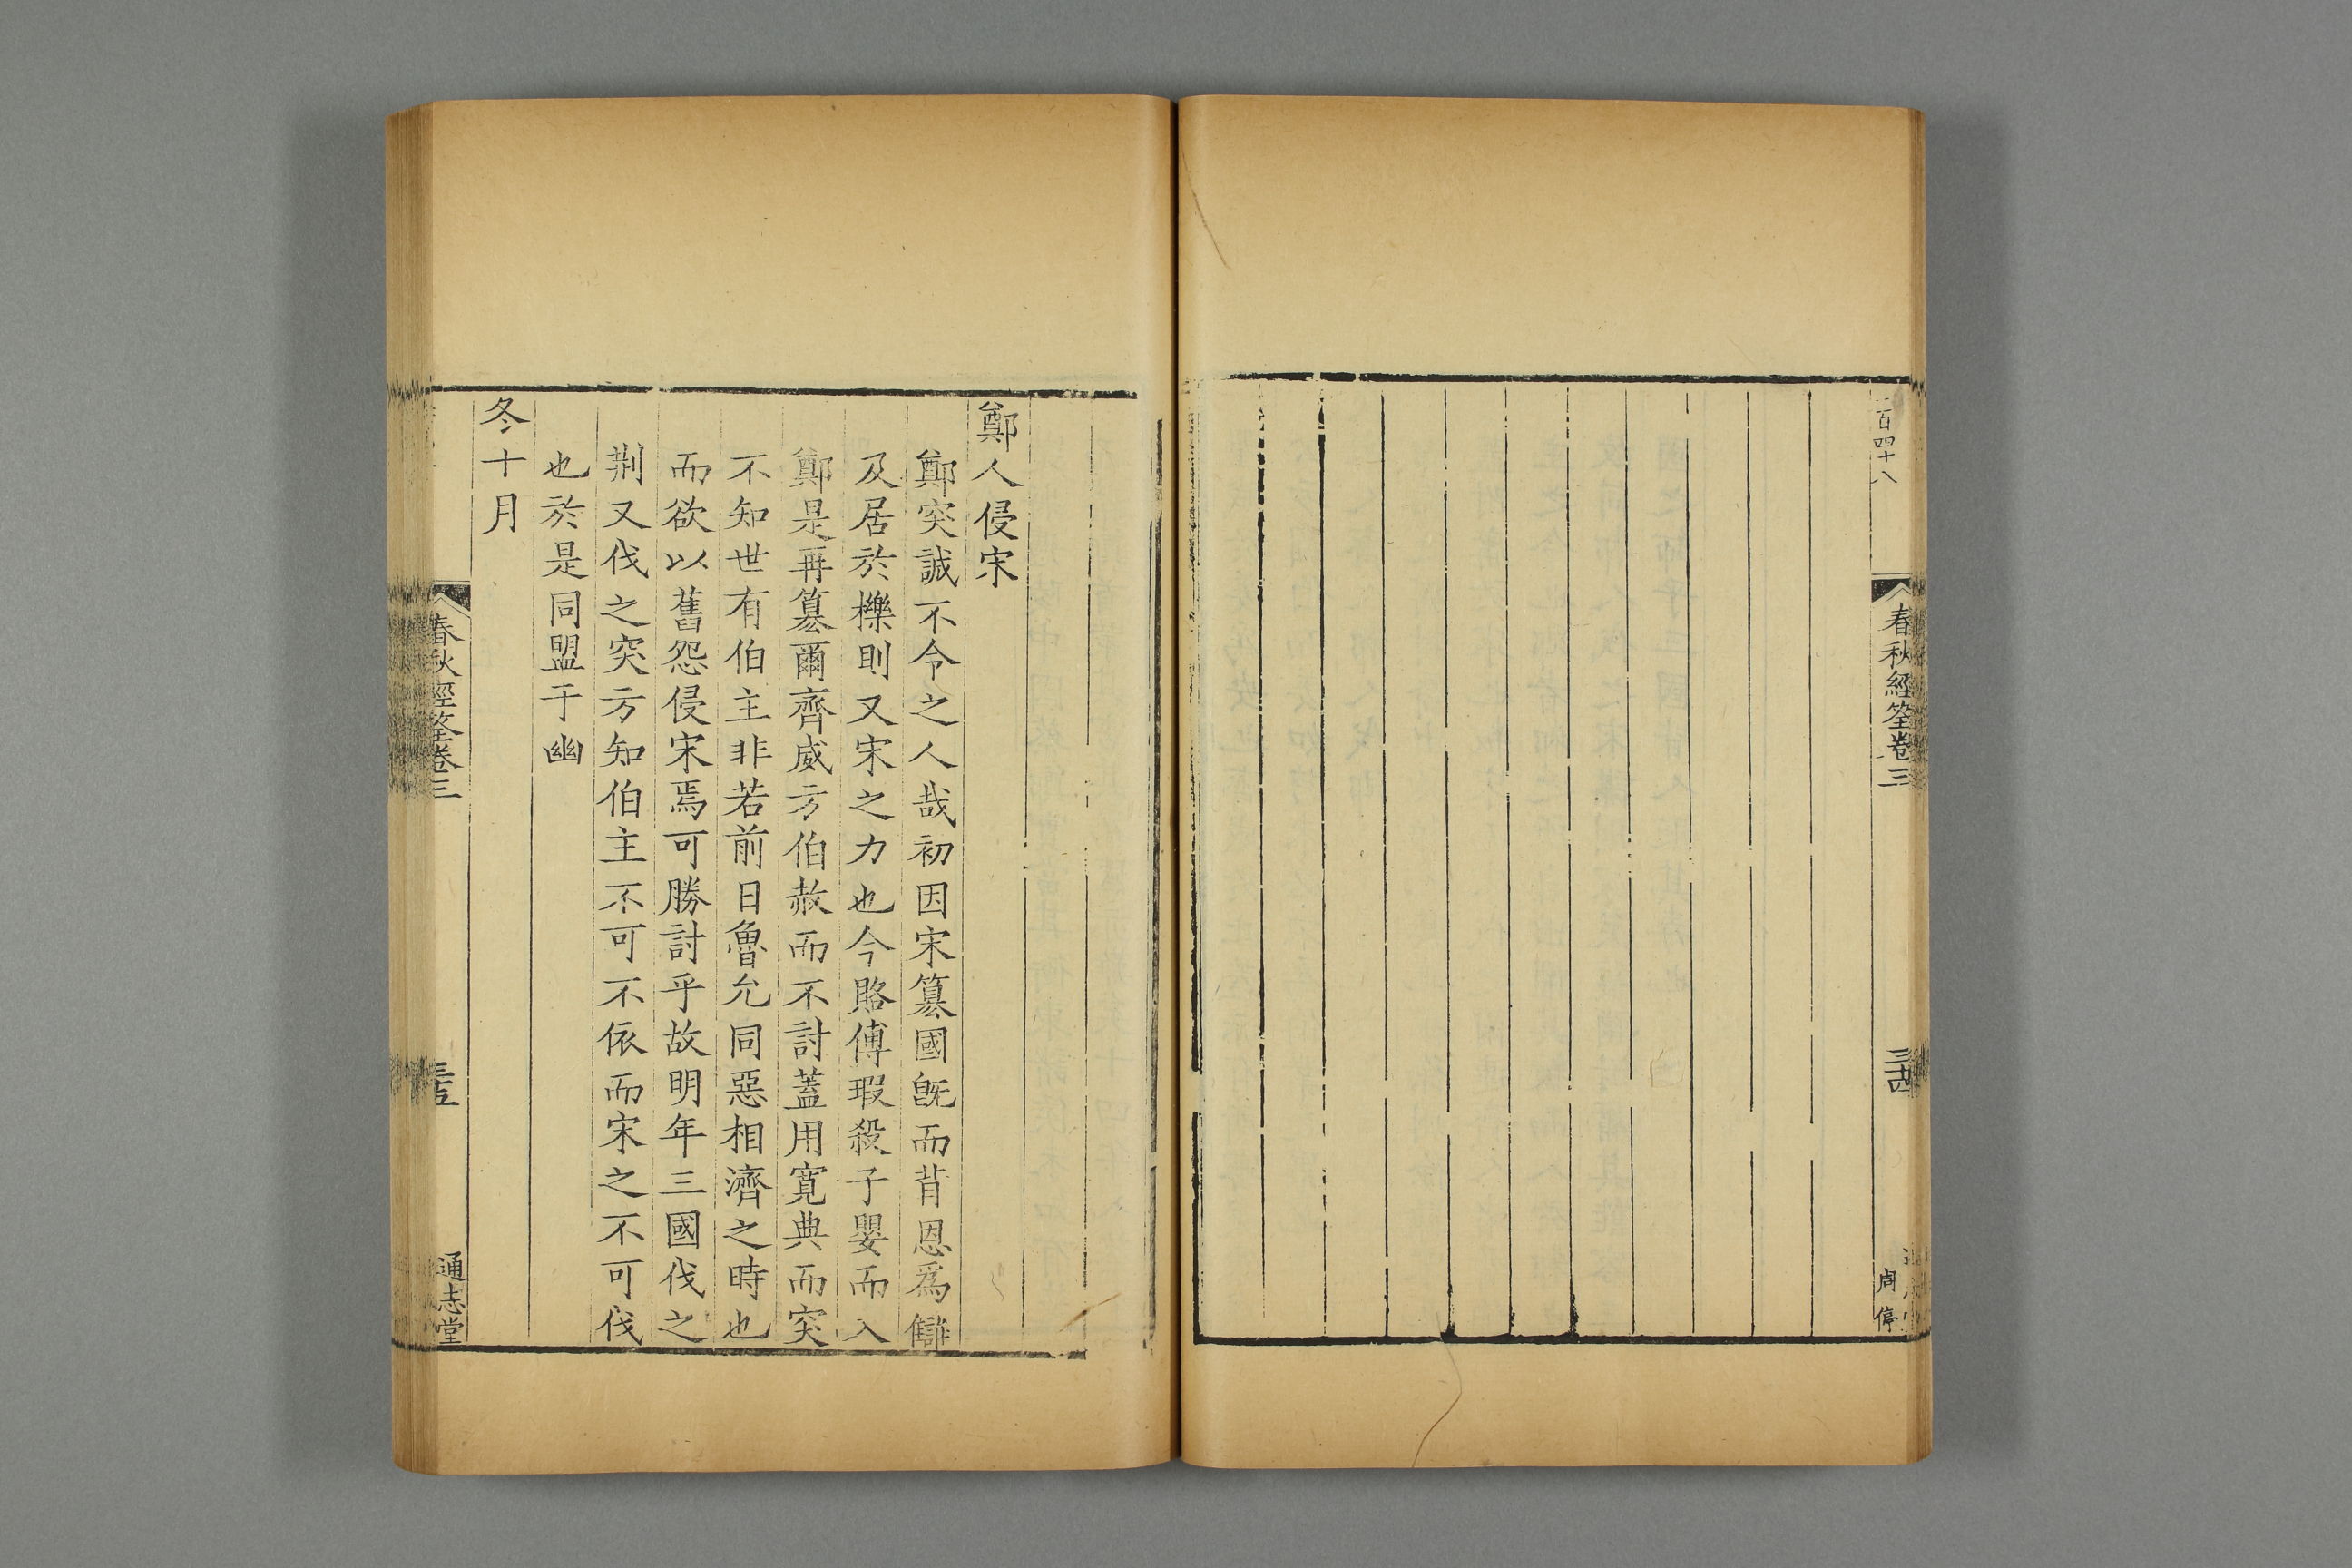 百四十八
春秋經筌卷三
三十四
周停
鄭人侵宋
鄭突誠不令之人哉初因宋篡國旣而背恩爲讎
及居於櫟則又宋之力也今賂傅瑕殺子嬰而入
鄭是再篡爾齊威方伯赦而不討蓋用寛典而突
不知世有伯主非若前日魯允同惡相濟之時也
而欲以舊怨侵宋焉可勝討乎故明年三國伐之
荆又伐之突方知伯主不可不依而宋之不可伐
也於是同盟于幽
冬十月
春秋經筌卷三
三十五
通志堂